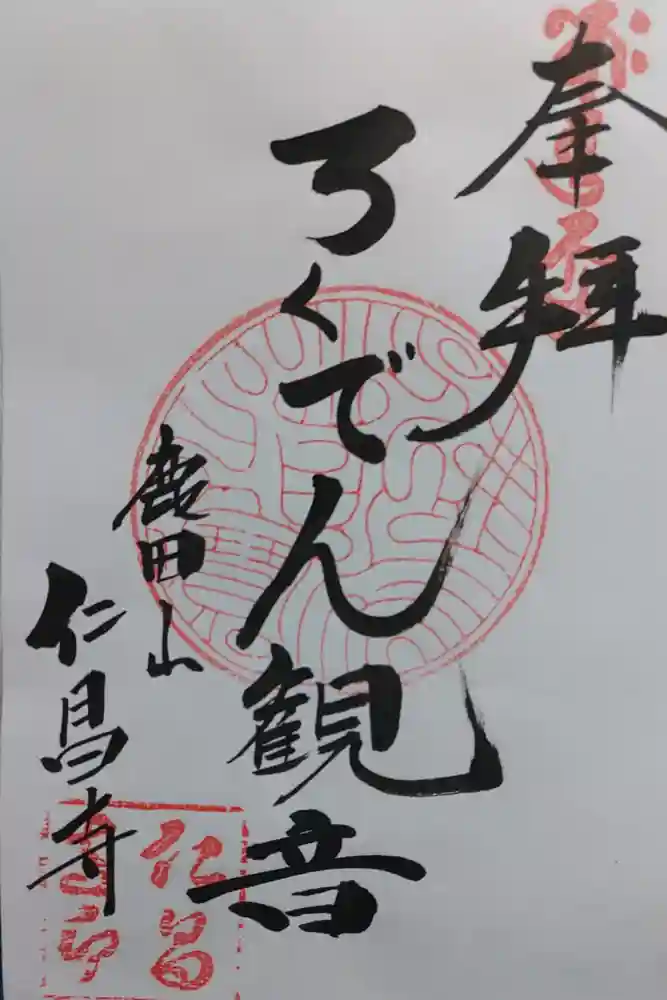 奉拝
ろくでん観音
鹿田山
仁昌寺
仁昌
寺印